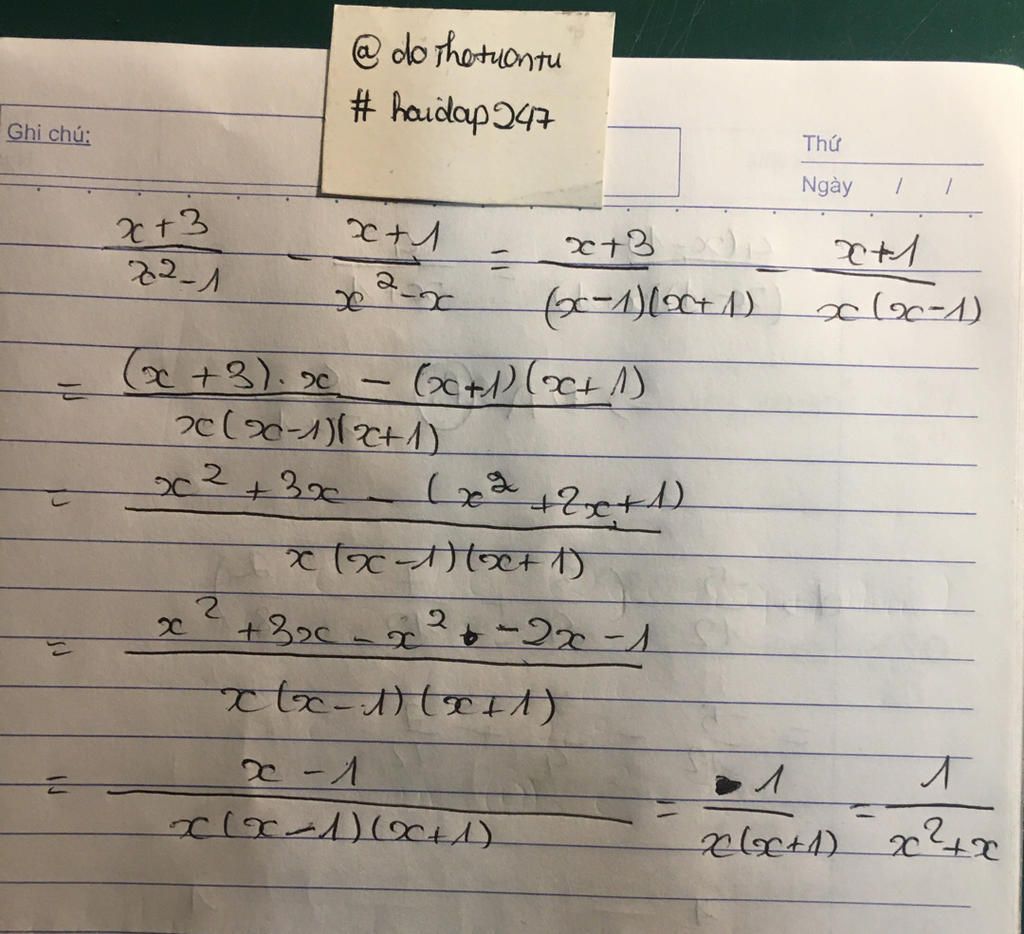 @ dothetuontu
# hoidap247
Ghi chú:
Thứ
Ngày / /
x+3/x²-1 - x+1/x²-x = x+3/(x-1)(x+1) - x+1/x(x-1)
= (x+3).x - (x+1)(x+1)/x(x-1)(x+1)
= x²+3x - (x²+2x+1)/x(x-1)(x+1)
= x²+3x-x²-2x-1/x(x-1)(x+1)
= x-1/x(x-1)(x+1) = 1/x(x+1) = 1/x²+x